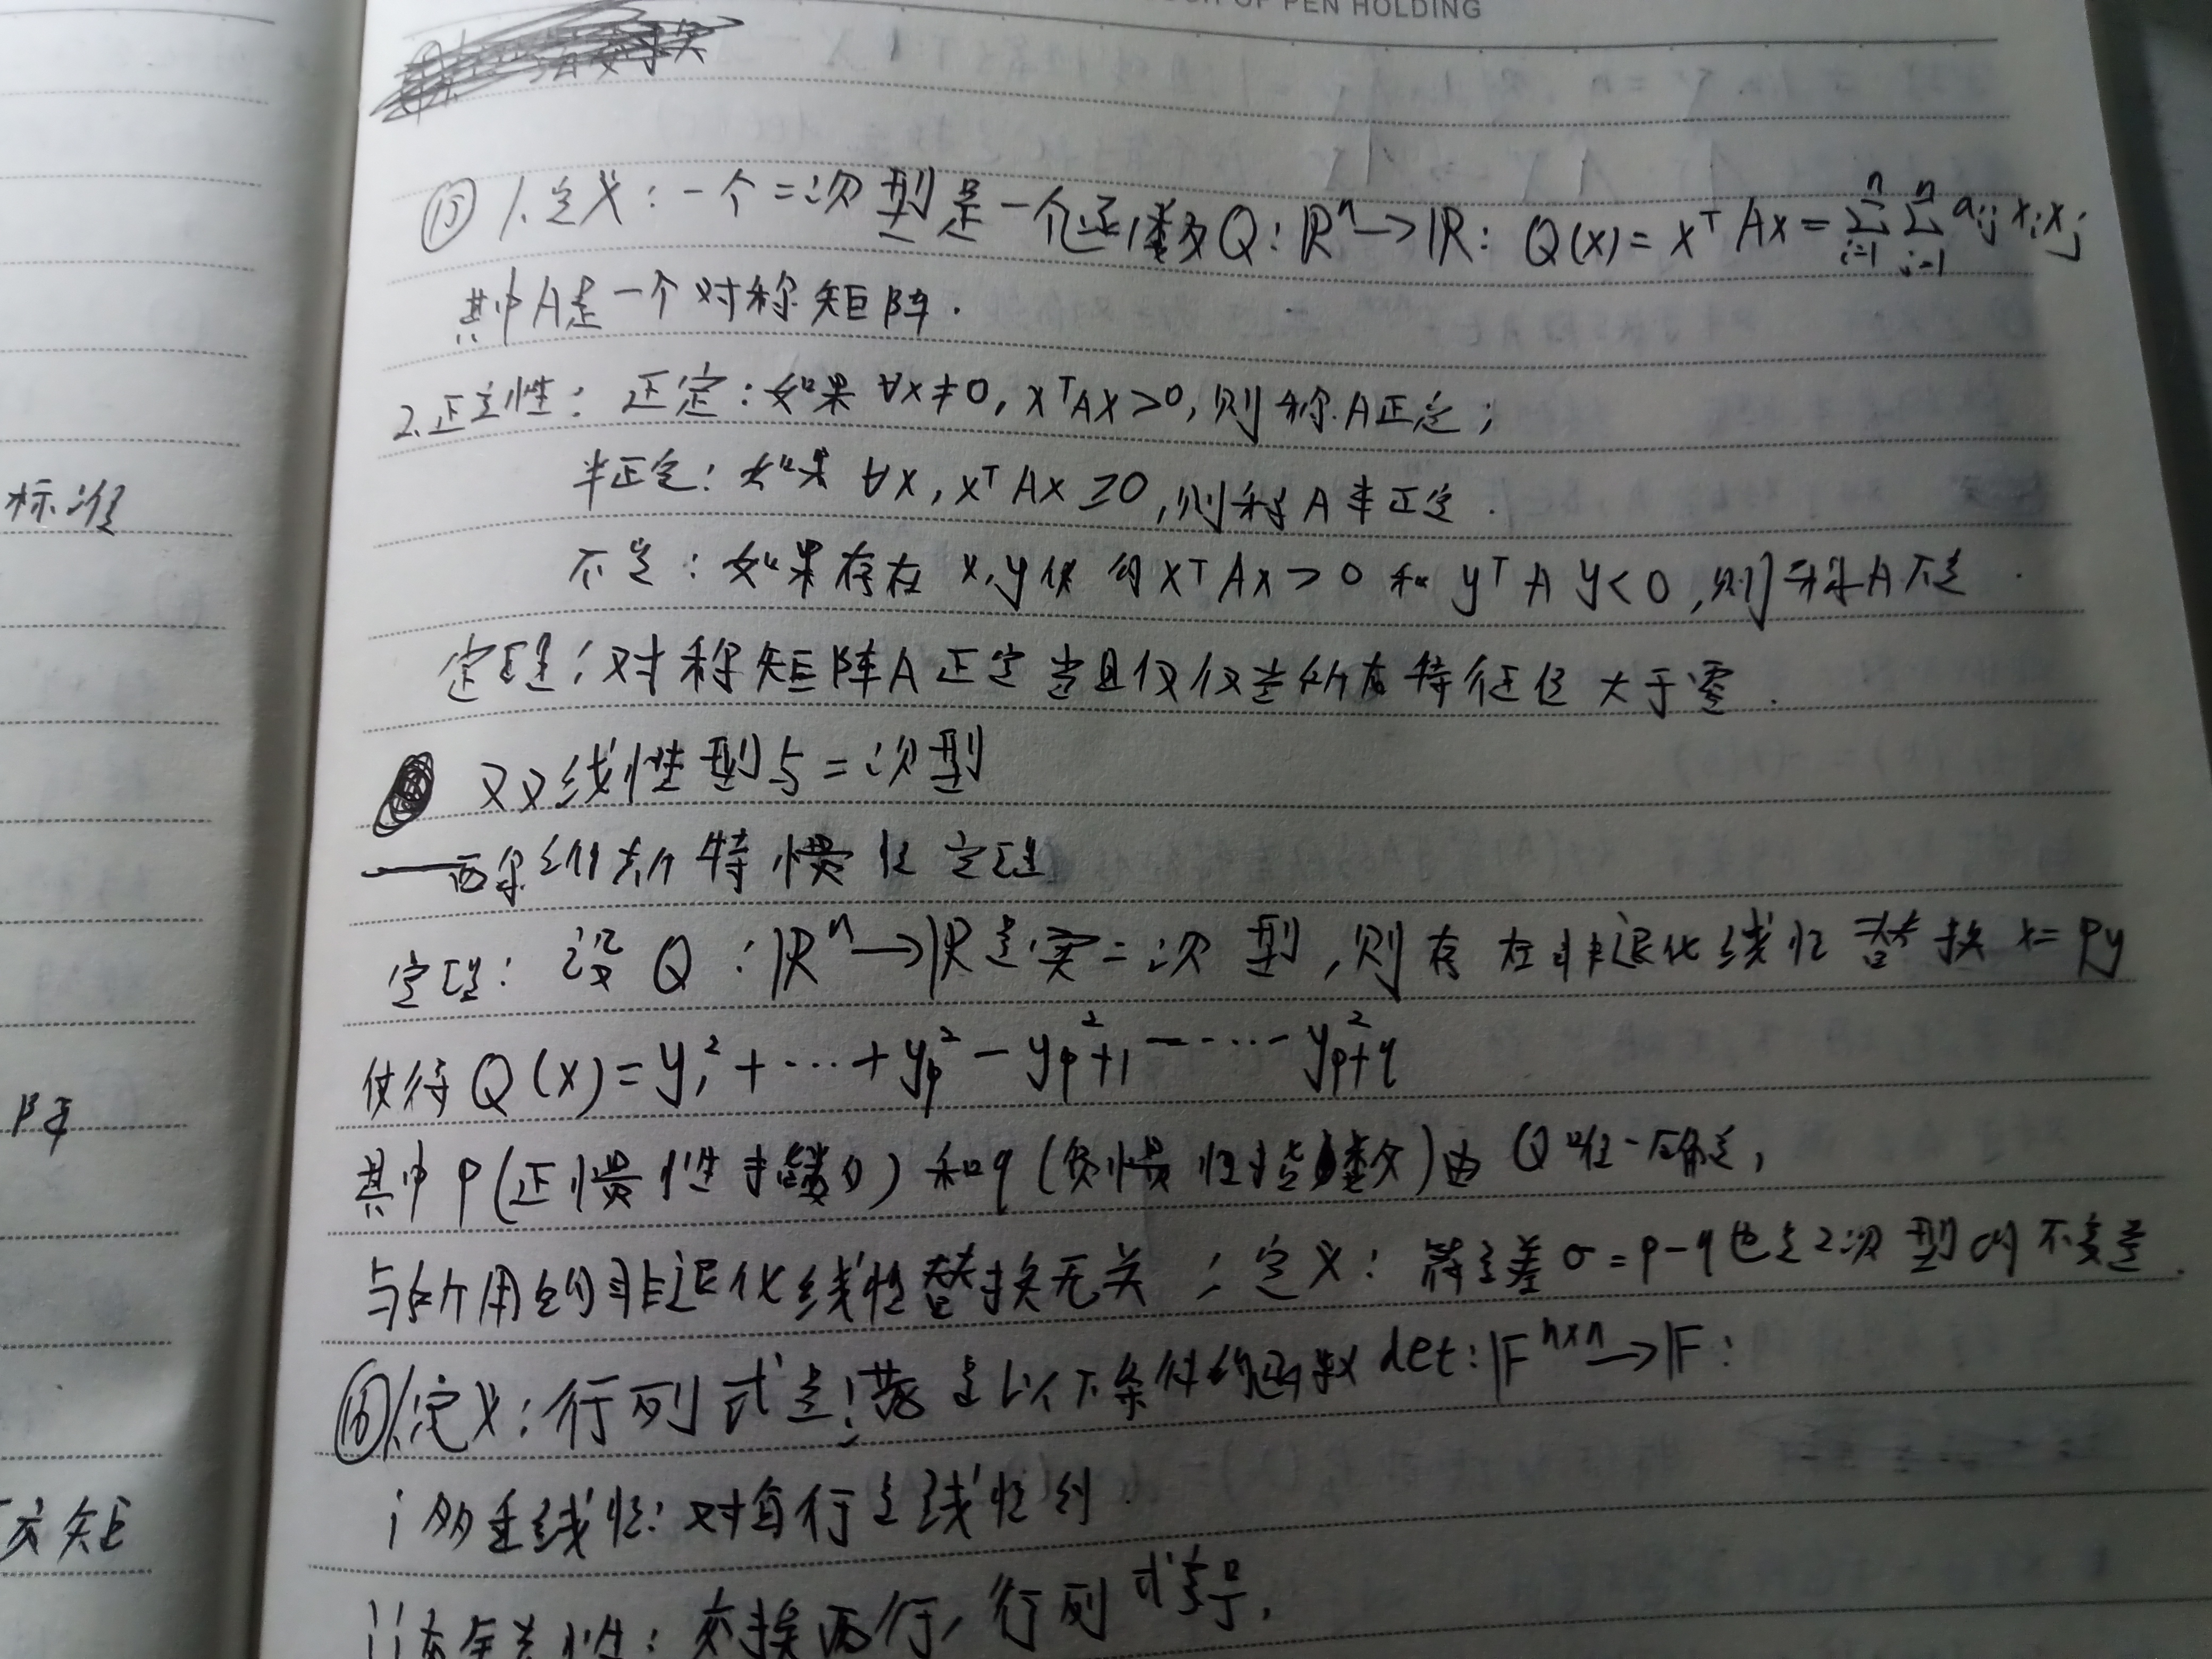 OF PEN HOLDING
⑮ 1.定义：一个二次型是一个函数Q：ℝⁿ→ℝ：Q(x)=xᵀAx=∑ⁿᵢ₌₁∑ⁿᵢ₌₁ aᵢⱼxᵢxⱼ
其中A是一个对称矩阵.
2.正定性：正定：如果∀x≠0, xᵀAx>0,则称A正定；
半正定：如果∀x, xᵀAx≥0,则称A半正定.
不定：如果存在x,y使得xᵀAx>0和yᵀAy<0,则称A不定.
定理：对称矩阵A正定当且仅仅当所有特征值大于零.
双线性型与二次型
——西尔维斯特惯性定理
定理：设Q：ℝⁿ→ℝ是实二次型,则存在非退化线性替换x=Py
使得Q(x)=y₁²+…+yₚ²-yₚ₊₁²-…-yₚ₊q²
其中p(正惯性指数)和q(负惯性指数)由Q唯一确定,
与所用的非退化线性替换无关；定义：符号差σ=p-q也是2次型的不变量.
⑯1.定义：行列式是满足以下条件的函数det：𝔽ⁿˣⁿ→𝔽：
i 多重线性：对每行是线性的.
ii 交换两行,行列式变号,
标准
阵
矩